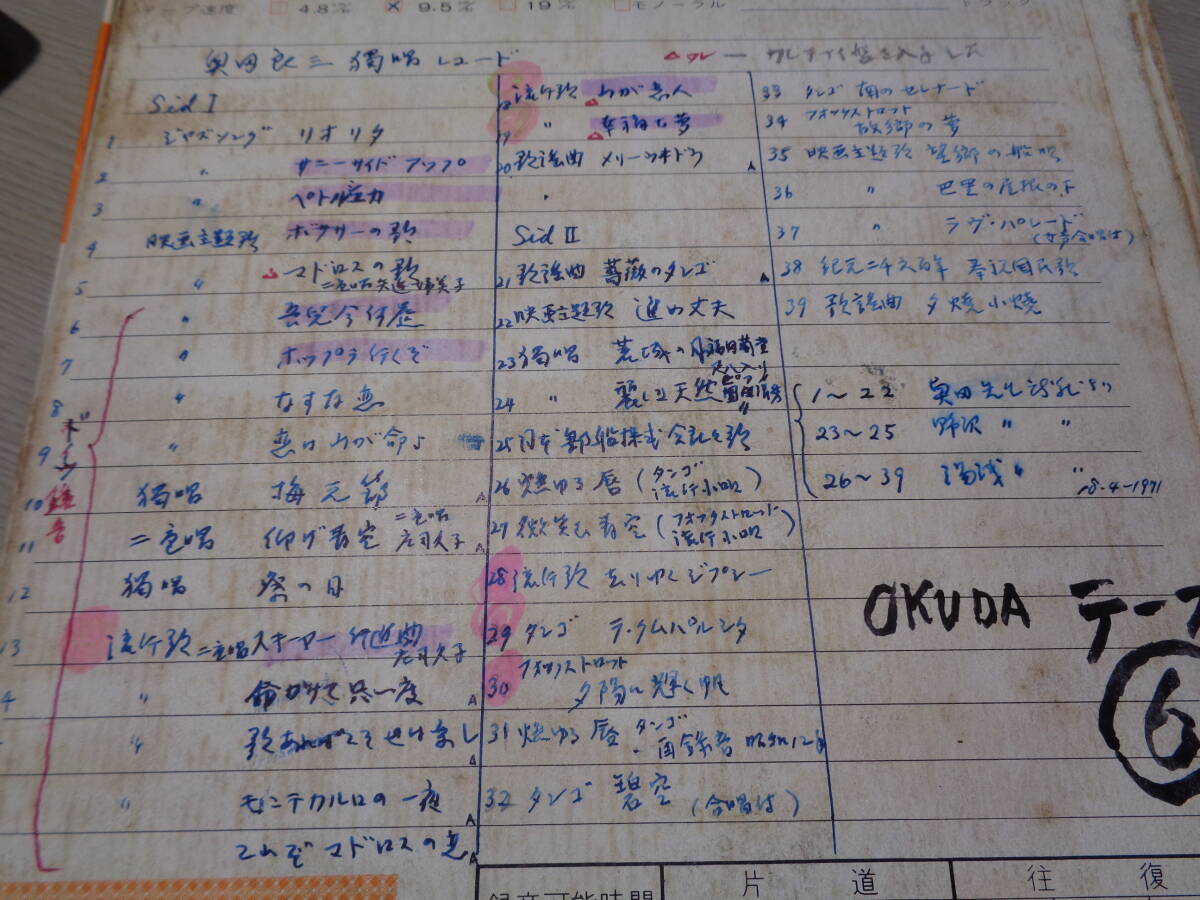 テープ速度 4.8 9.5 19 モノーラル トラック
奥田良三 獨唱 レコード
Sid I
1 ジャズソング リオリタ
2 〃 サニーサイドアップ
3 〃 ペトル圧力
4 映画主題歌 ボクサーの歌
5 〃 マドロスの歌
二重唱
6 〃 吾兒今何處
7 〃 ホップラ行くぞ
8 〃 なすな恋
9 〃 恋は 我が命よ
10 獨唱 梅元節
11 二重唱 仰げ青空 二重唱 庄司久子
12 獨唱 祭の日
13 流行歌 二重唱 スキーヤー行進曲
庄司久子
4 〃 命かけて只一度
〃 歌あればこそ
〃 モンテカルロの一夜
これぞマドロスの恋
ドイツ録音
18 流行歌 我が恋人
19 〃 幸福な夢
20 歌謡曲 メリーウイドウ
Sid II
21 歌謡曲 薔薇のタンゴ
22 映画主題歌 進め丈夫
23 獨唱 荒城の月
24 〃 麗しき天然
25 日本郵船株式会社々歌
26 燃ゆる唇 (タンゴ 流行小唄)
27 微笑む青空 (フオックストロット 流行小唄)
28 流行歌 去りゆくジプシー
29 タンゴ ラ・クムパルシタ
30 フオックストロット
夕陽に輝く帆
31 燃ゆる唇 タンゴ・再録音 昭和12年
32 タンゴ 碧空 (合唱付)
33 タンゴ 南のセレナード
34 フオックストロット
故郷の夢
35 映画主題歌 望郷の船唄
36 〃 巴里の屋根の下
37 〃 ラヴ・パレード
(女声合唱付)
38 紀元二千六百年 奉祝国民歌
39 歌謡曲 夕焼小焼
1〜22 奥田先生
23〜25 野沢 〃 〃
26〜39 〃 〃
18-4-1971
OKUDA テープ
6
録音可能時間 片道 往復